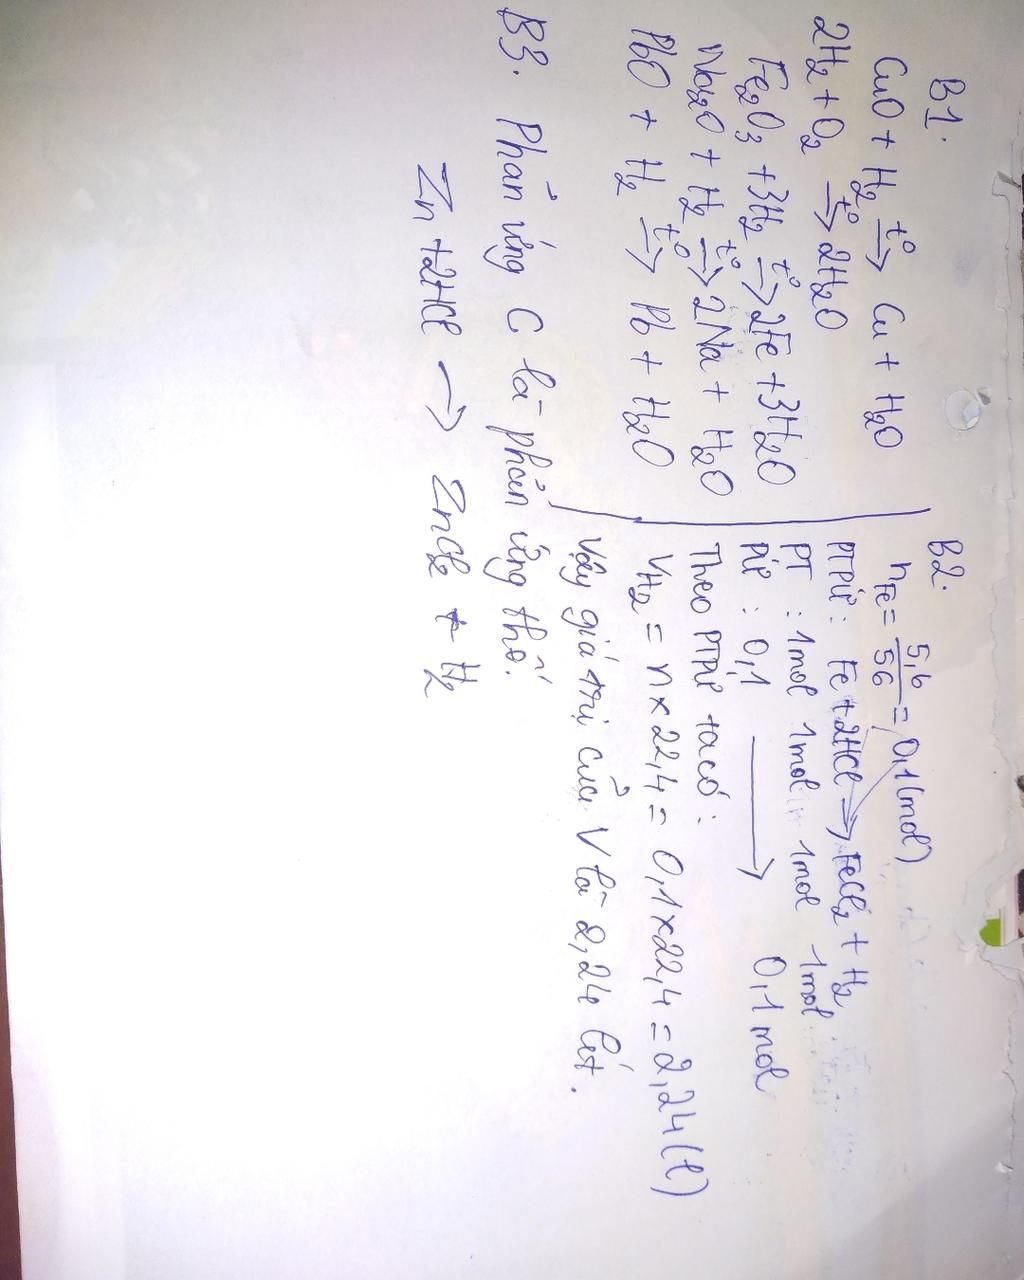 B1.
CuO + H₂ t°→ Cu + H₂O
2H₂ + O₂ t°→ 2H₂O
Fe₂O₃ + 3H₂ t°→ 2Fe + 3H₂O
Na₂O + H₂ t°→ 2Na + H₂O
PbO + H₂ t°→ Pb + H₂O
B2.
nFe = 5,6/56 = 0,1 (mol)
PTPƯ: Fe + 2HCl → FeCl₂ + H₂
PT : 1mol 1mol 1mol 1mol
PƯ : 0,1 → 0,1 mol
Theo PTPƯ ta có:
VH₂ = n x 22,4 = 0,1 x 22,4 = 2,24 (l)
Vậy giá trị của V là 2,24 lít.
B3. Phản ứng C là phản ứng thế.
Zn + 2HCl → ZnCl₂ + H₂